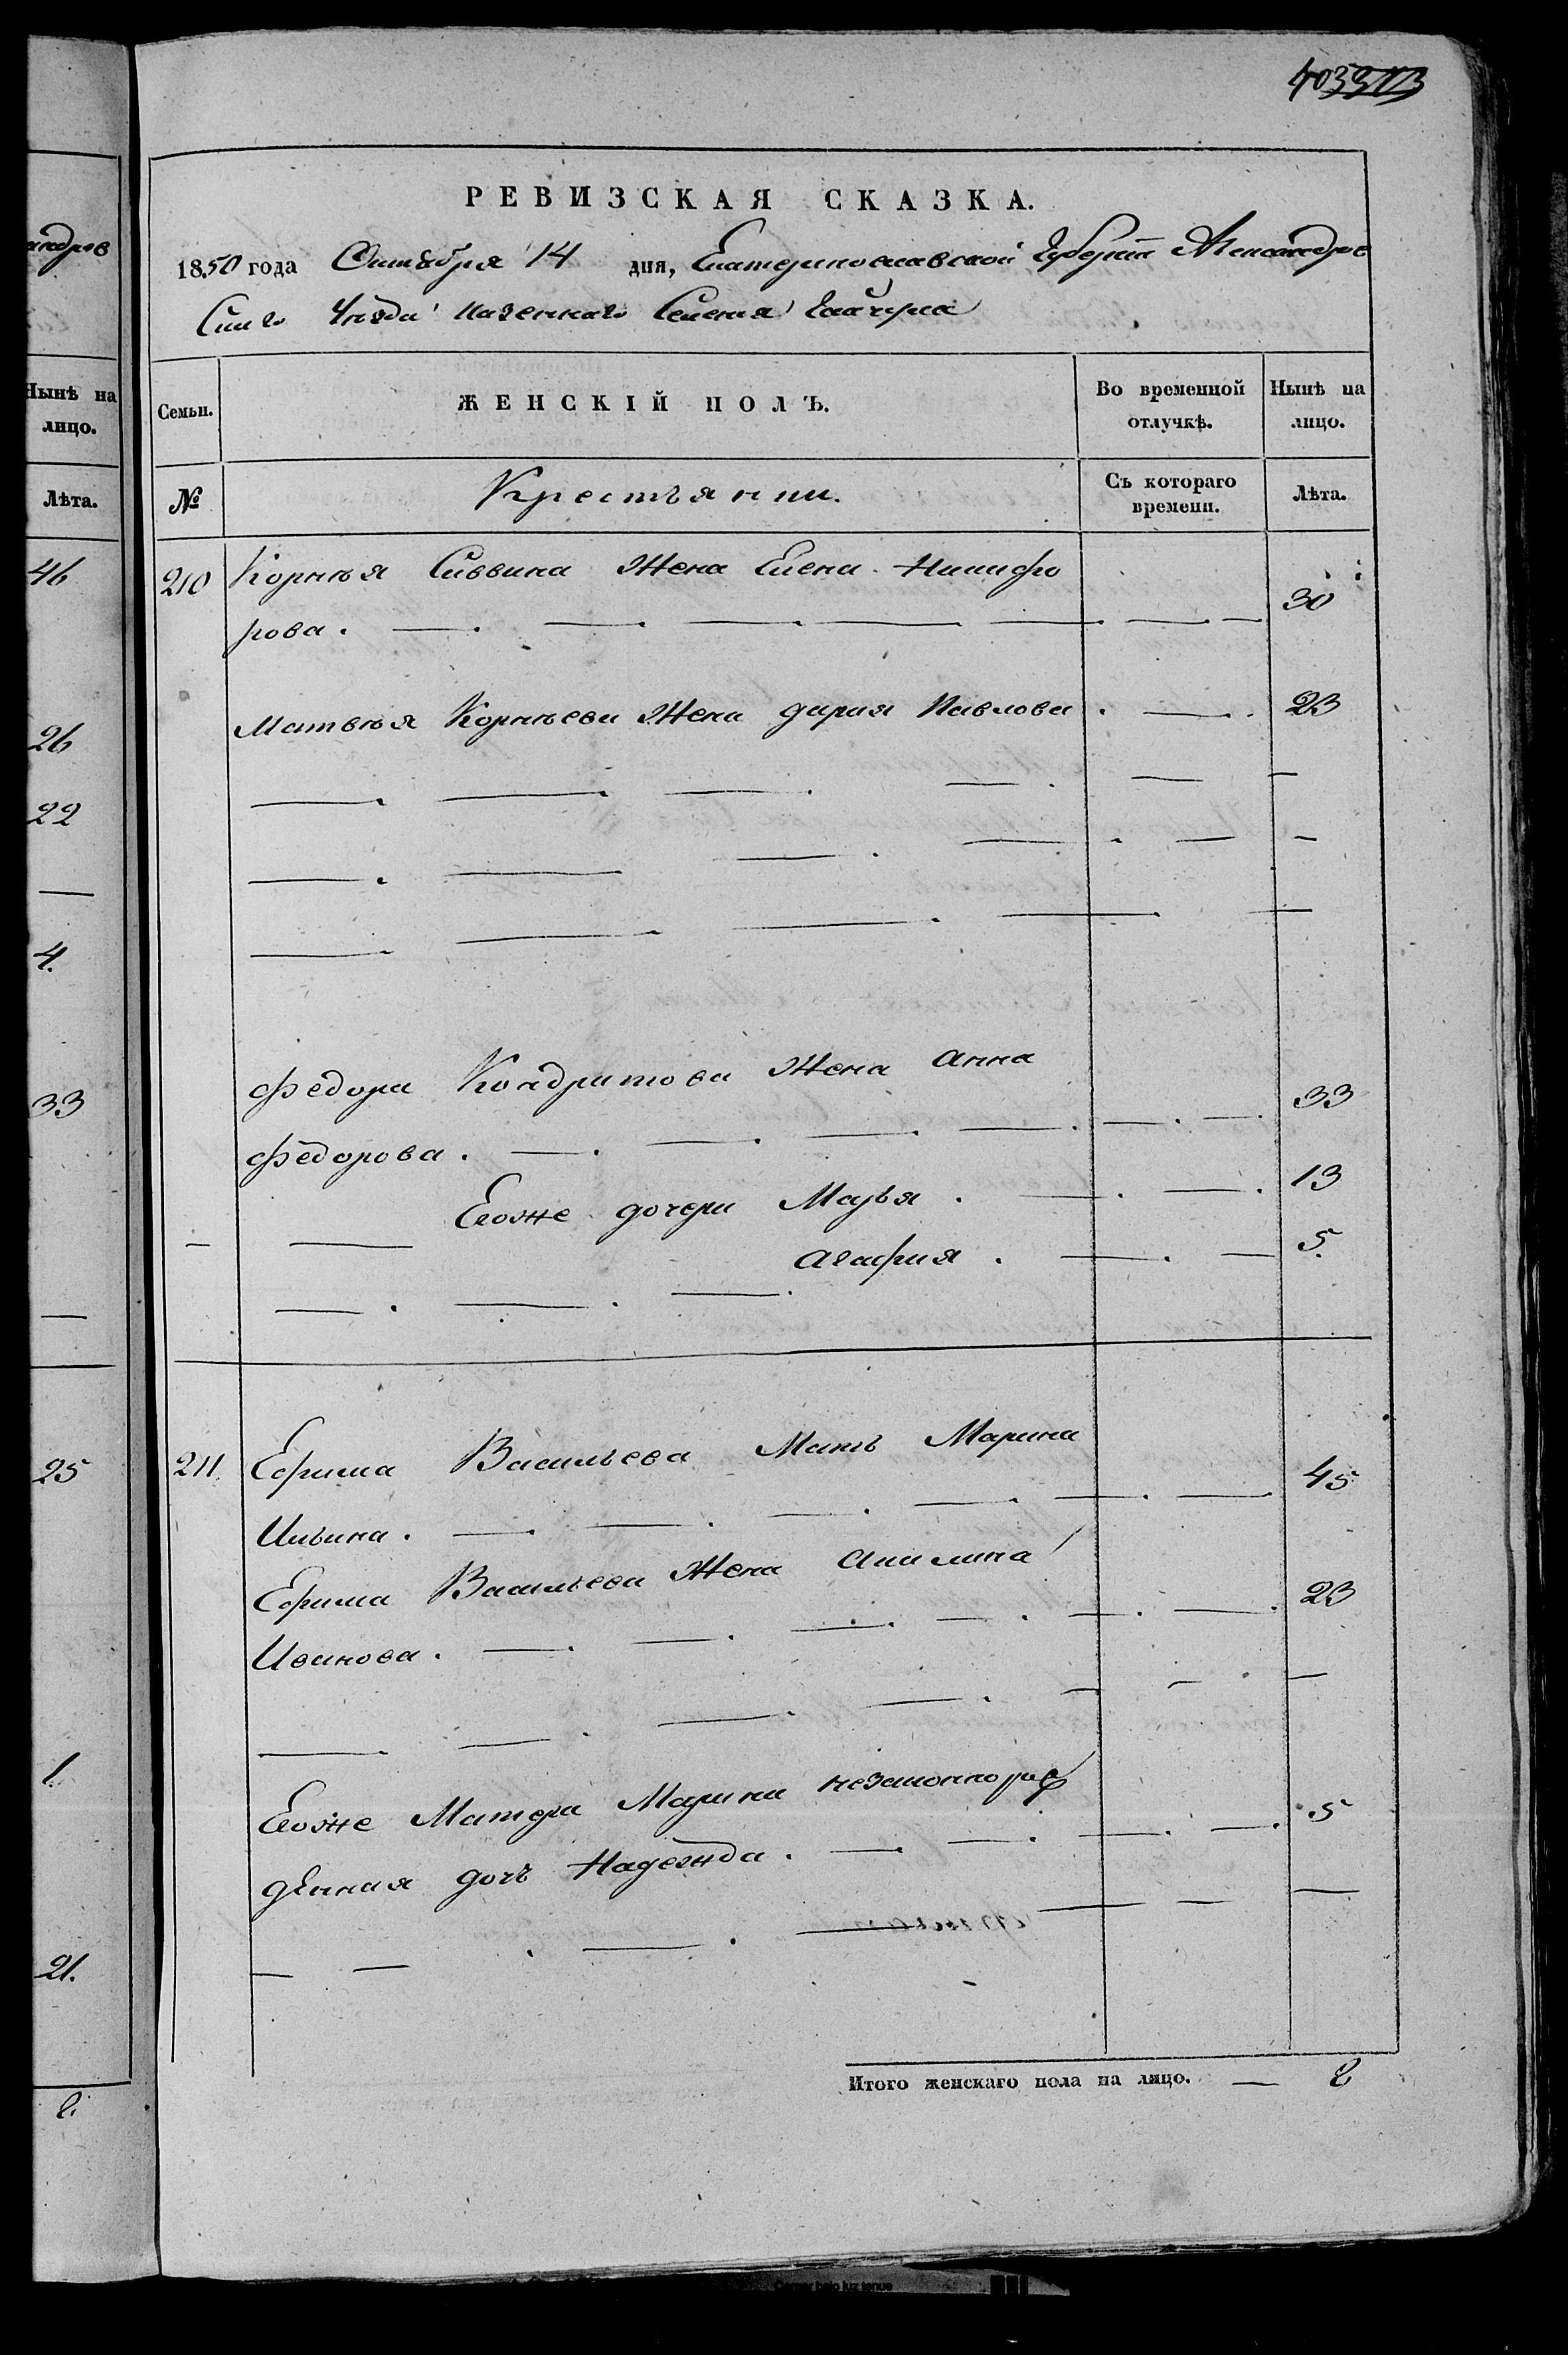 403
андров
РЕВИЗСКАЯ СКАЗКА.
1850 года Октября 14 дня, Екатеринославской Губернiи Александров
Скаго Уезда Казеннаго Селения
Нынѣ на лицо.
Семьи.
ЖЕНСКІЙ ПОЛЪ.
Во временной отлучкѣ.
Нынѣ на лицо.
Лѣта.
№
Крестьянки.
Съ котораго времени.
Лѣта.
46
210 Корнѣя Саввина Жена Елена Никифо
рова. 30
26
Матвѣя Корнѣева Жена дарья Павлова 23
22
4.
33
Федора Кондратова Жена Анна
Федорова. 33
Егоже дочери Марья 13
Агафия 5.
25
211. Ефима Васильева Мать Марина
Ильина. 45
Ефима Васильева Жена Акилина
Иванова. 23
1.
Егоже Матери Марины незаконнорож
денная дочь Надежда. 5
21.
Итого женскаго пола на лицо. 8
8.